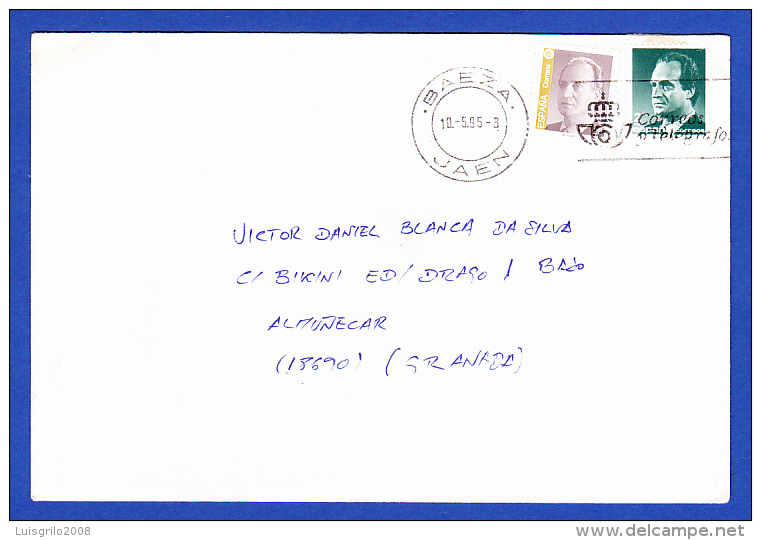 BAEZA
10.-5.95-8
JAEN
ESPAÑA Correos
Correos
y telégrafos
VICTOR DANIEL BLANCA DA SILVA
C/ BIKINI ED/ DRAGO 1 BAJO
ALMUÑECAR
(18690) (GRANADA)
Luisgrilo2008
delcampe.net